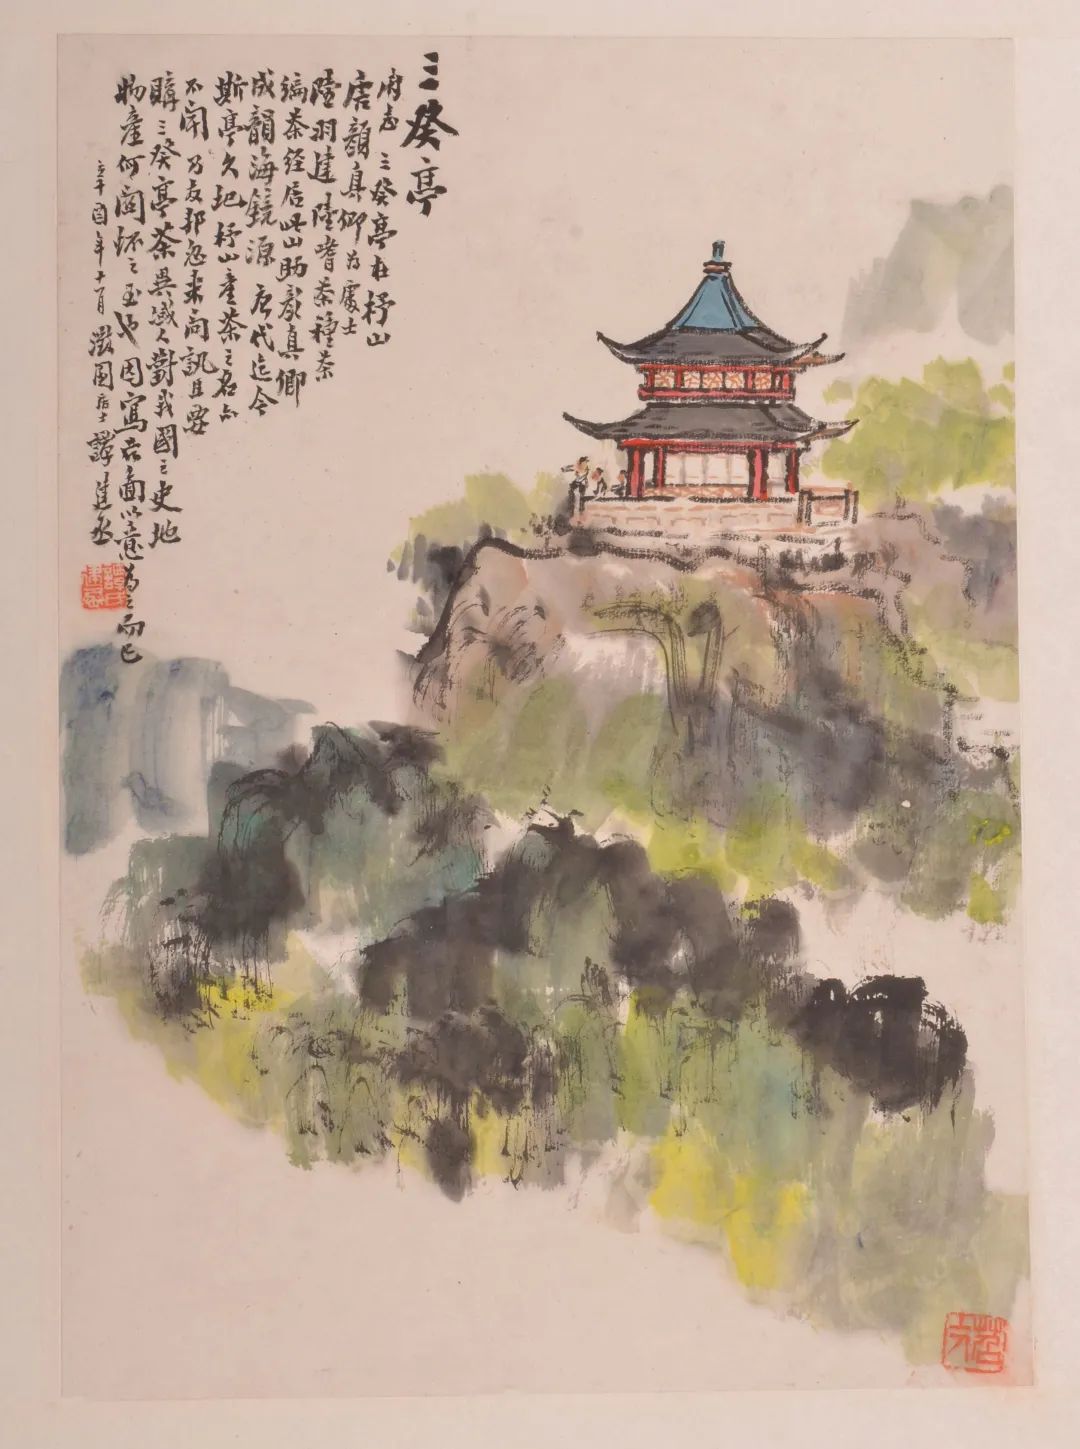 三癸亭
府志 三癸亭在杼山
唐顏真卿为處士
陸羽建 陸嗜茶種茶
編茶經居此山助顏真卿
成韻海鏡源 唐代迄今
斯亭久圮杼山產茶之名亦
不聞 乃友邦忽來問訊且要
購三癸亭茶異域人對我國之史地
物產何關懷之至也因寫茲圖以意為之而已
辛酉年十一月 澂園居士譚建丞